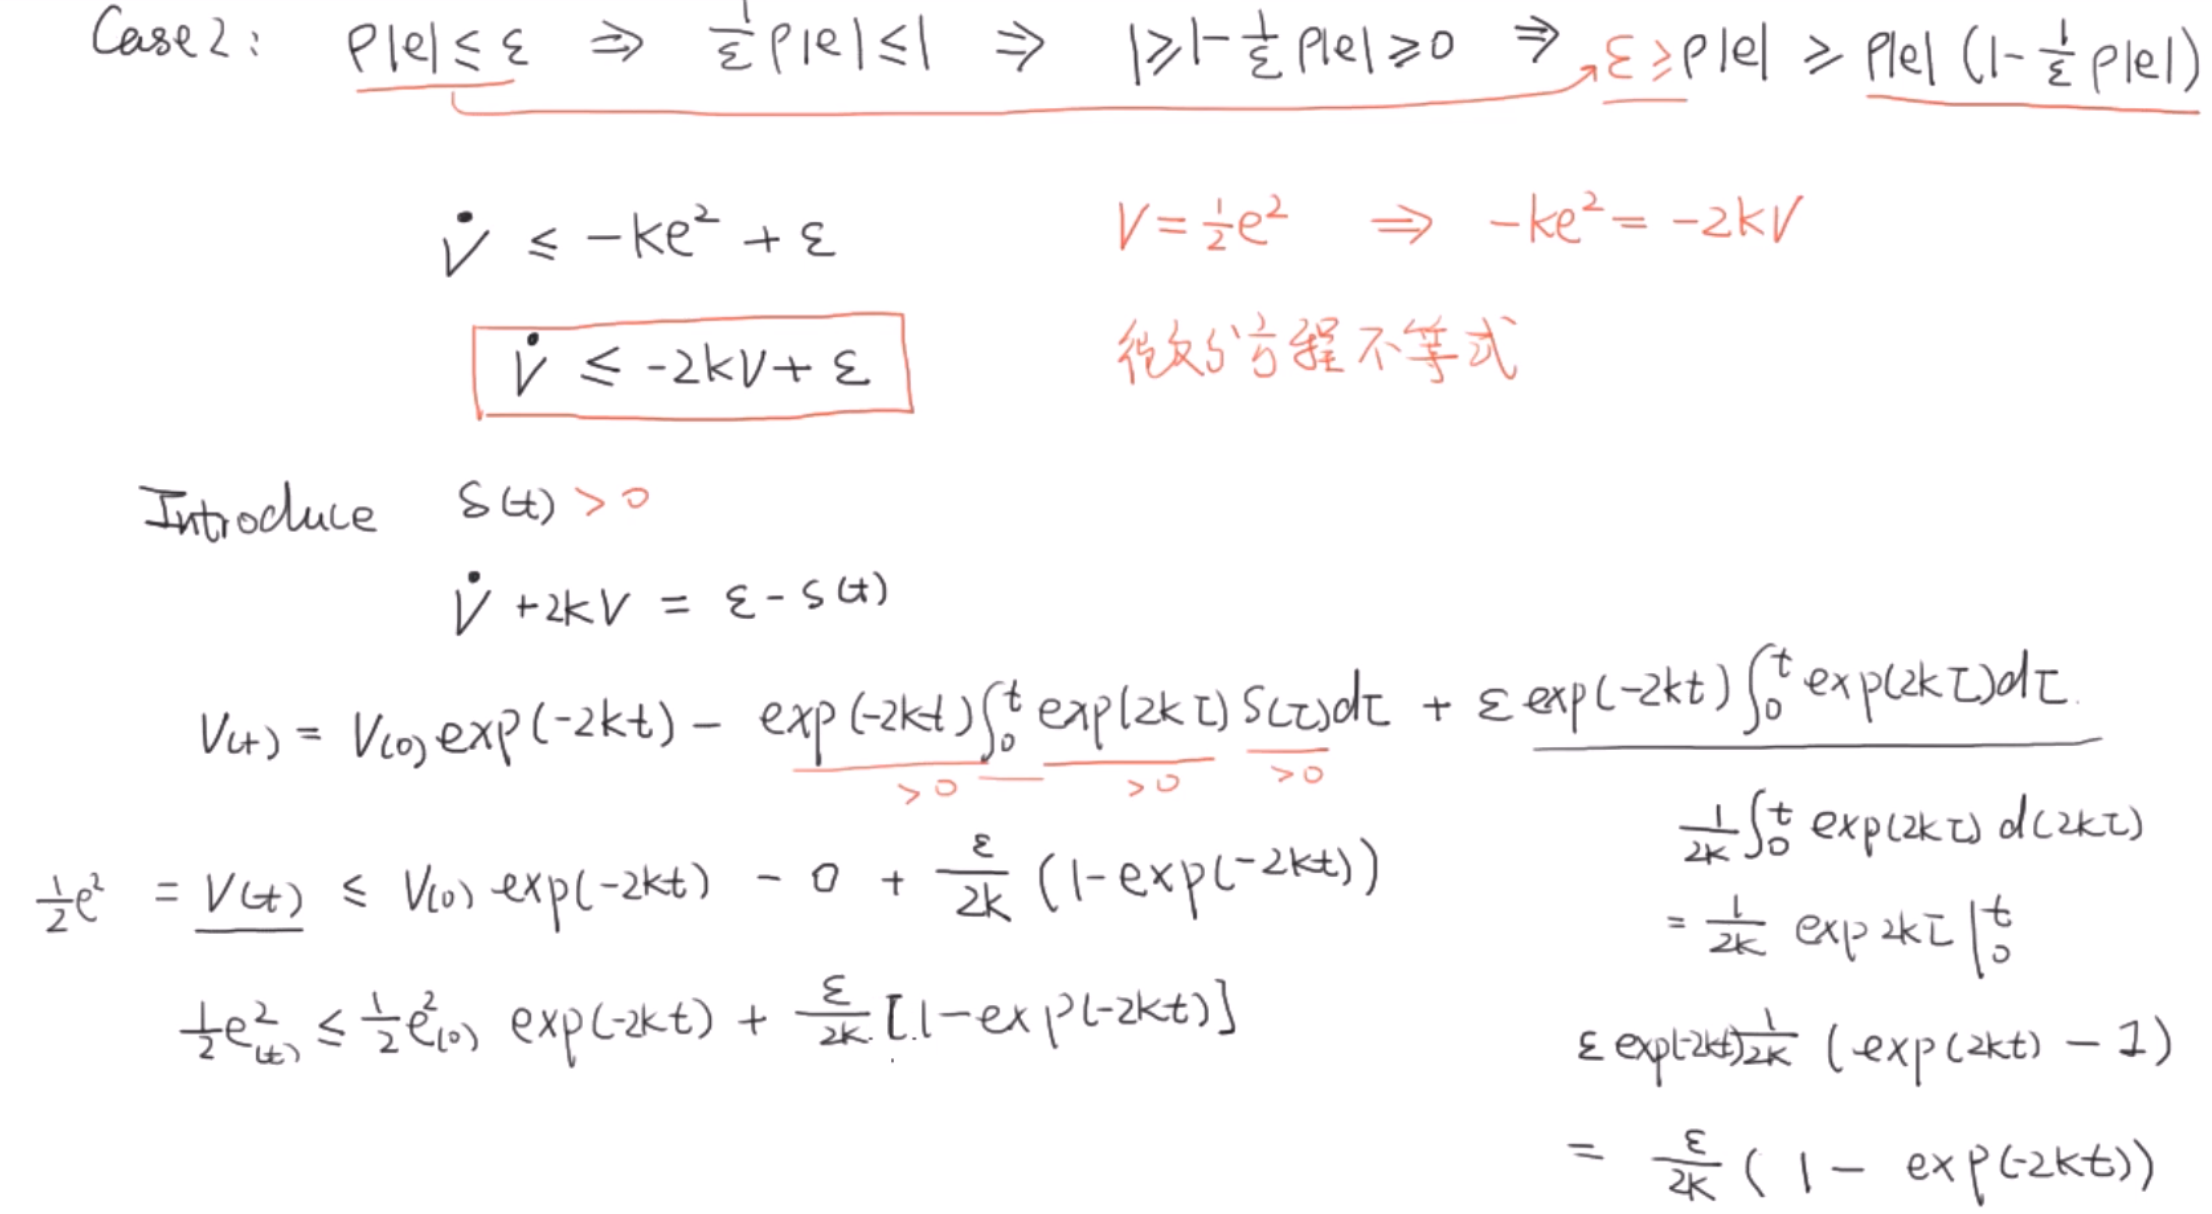 Case 2: ρ|e| ≤ ε ⇒ 1/ε ρ|e| ≤ 1 ⇒ 1 ≥ 1 - 1/ε ρ|e| ≥ 0 ⇒ ε ≥ ρ|e| ≥ ρ|e| (1 - 1/ε ρ|e|)
V̇ ≤ -ke² + ε
V = 1/2 e² ⇒ -ke² = -2kV
V̇ ≤ -2kV + ε
微分方程不等式
Introduce S(t) > 0
V̇ + 2kV = ε - S(t)
V(t) = V(0) exp(-2kt) - exp(-2kt) ∫₀ᵗ exp(2kτ) S(τ)dτ + ε exp(-2kt) ∫₀ᵗ exp(2kτ)dτ
>0 >0 >0
1/2k ∫₀ᵗ exp(2kτ) d(2kτ)
1/2 e² = V(t) ≤ V(0) exp(-2kt) - 0 + ε/2k (1 - exp(-2kt))
= 1/2k exp 2kτ |₀ᵗ
1/2 e²(t) ≤ 1/2 e²(0) exp(-2kt) + ε/2k [1 - exp(-2kt)]
ε exp(-2kt) 1/2k (exp(2kt) - 1)
= ε/2k (1 - exp(-2kt))